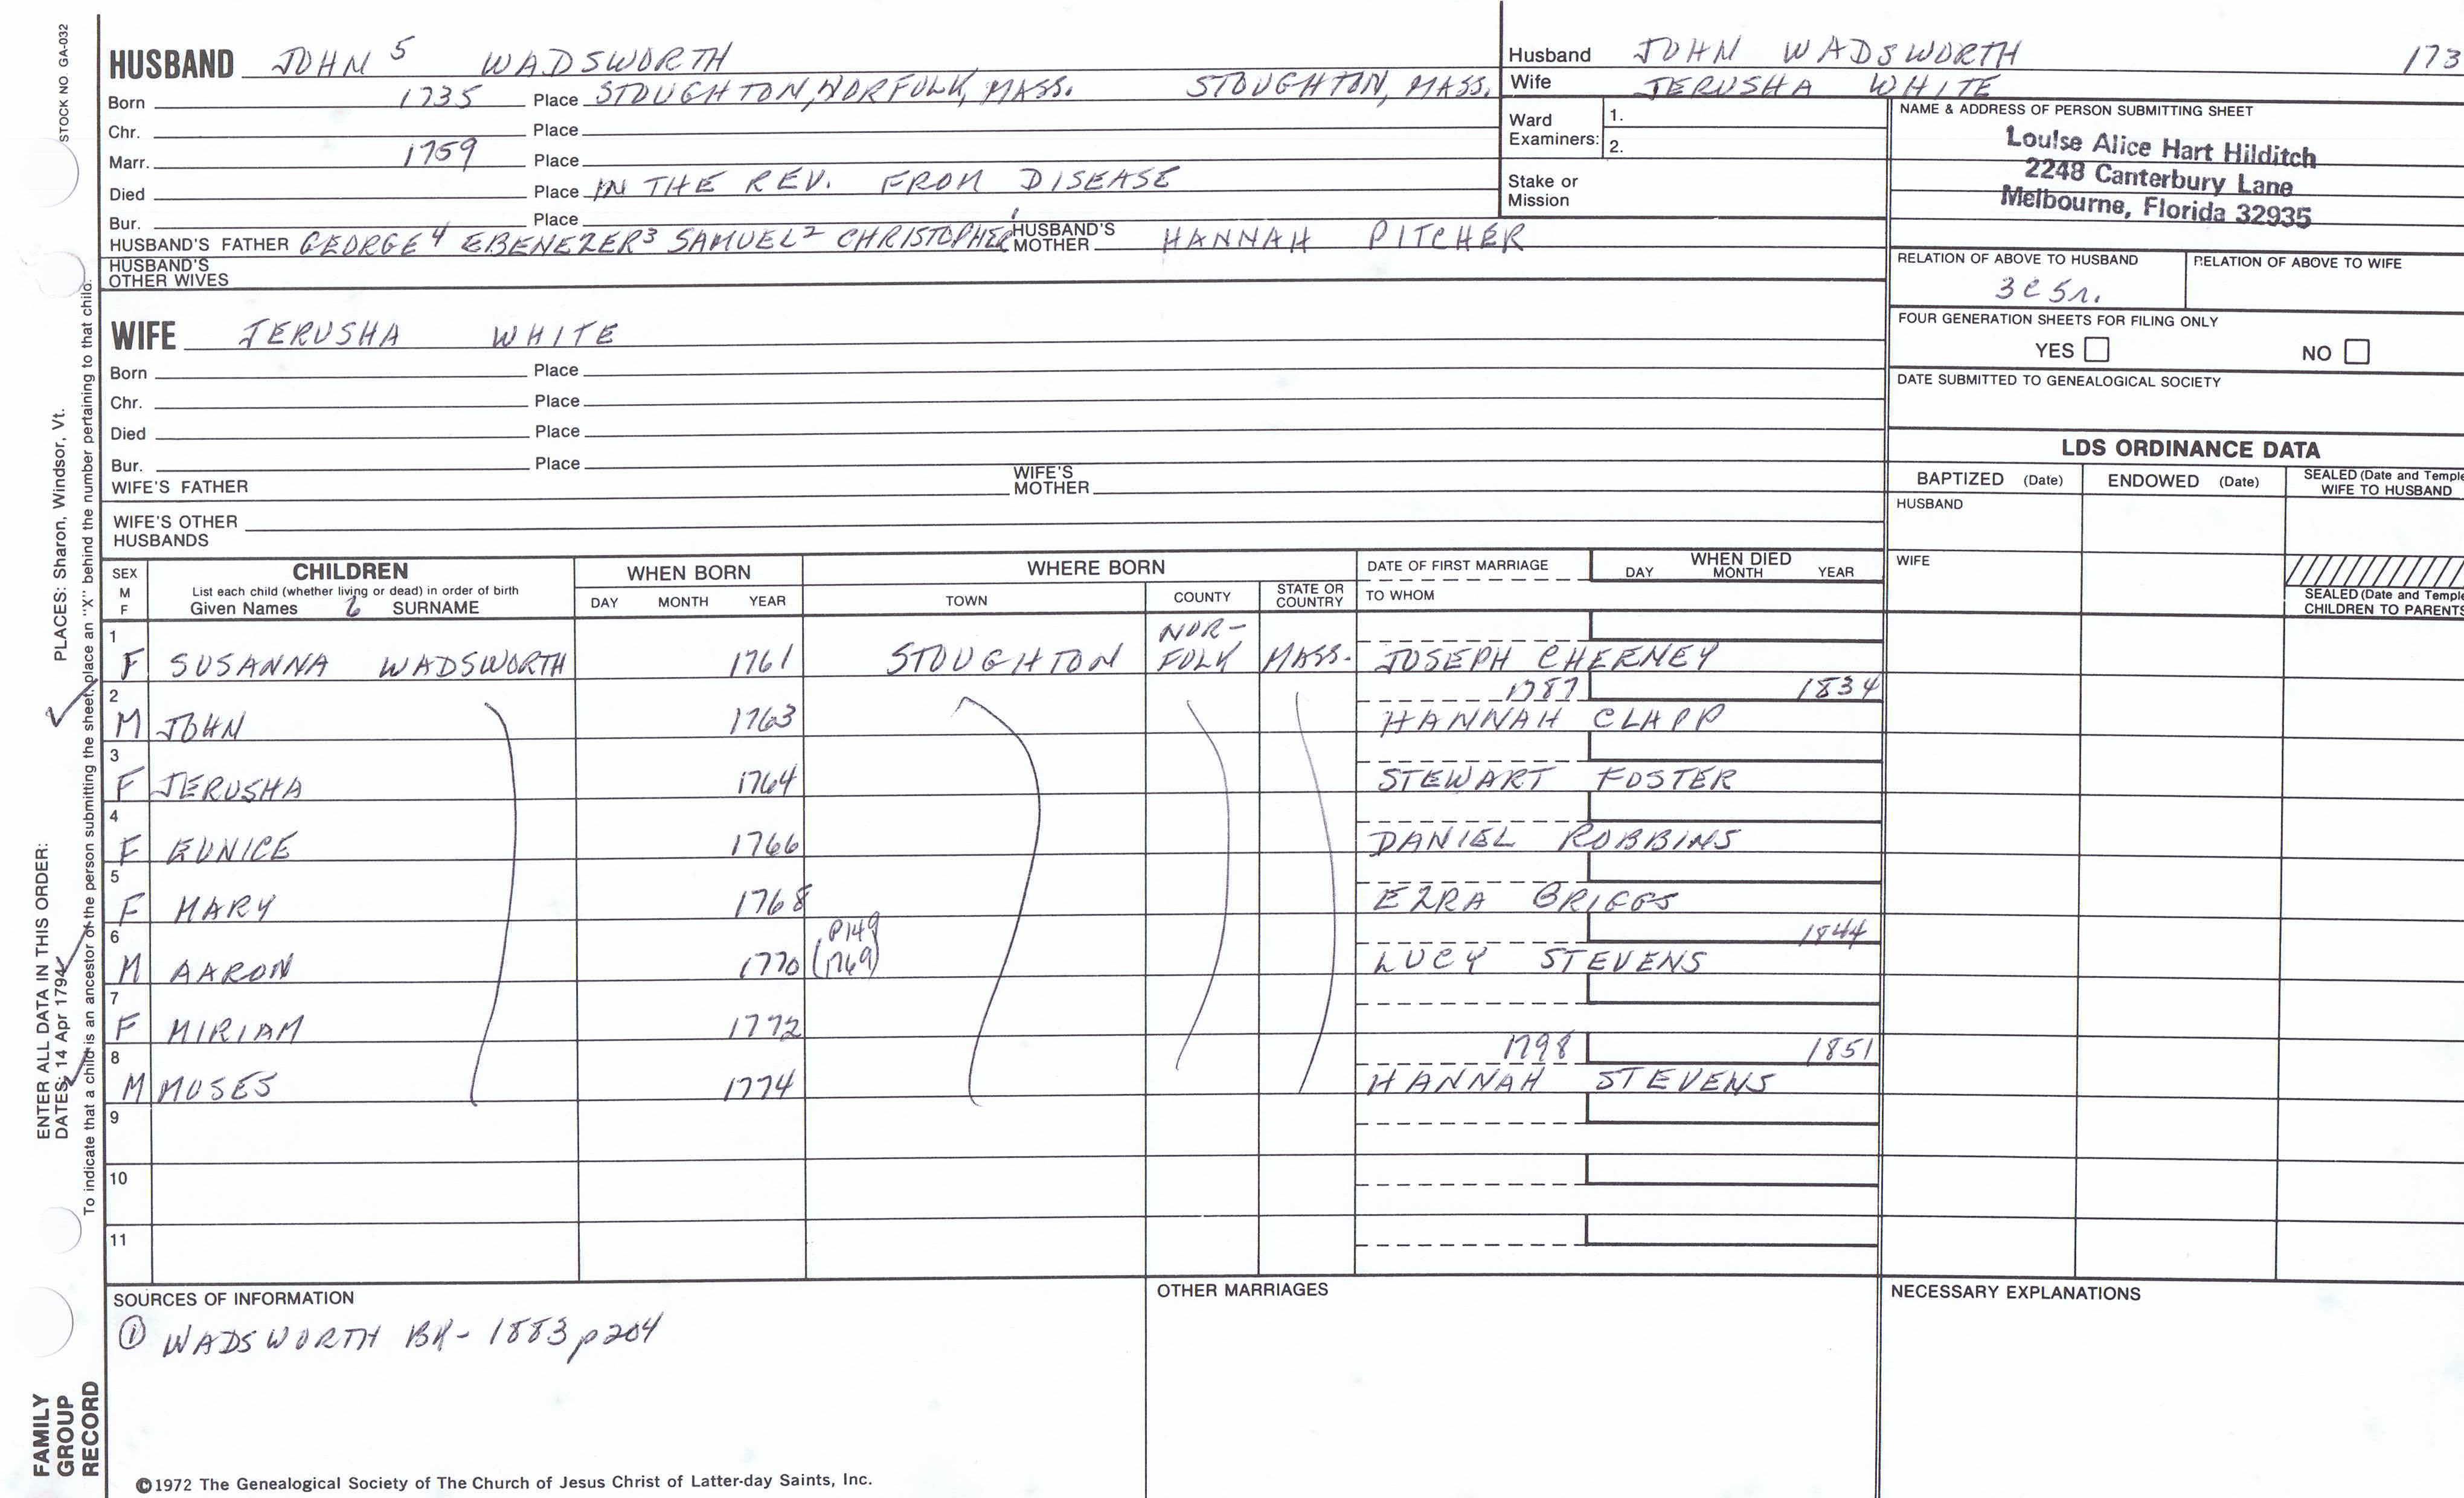 STOCK NO GA-032
HUSBAND JOHN 5 WADSWORTH
Born 1735 Place STOUGHTON, NORFOLK, MASS. STOUGHTON, MASS.
Chr. Place
Marr. 1759 Place
Died Place IN THE REV. FROM DISEASE
Bur. Place
HUSBAND'S FATHER GEORGE 4 EBENEZER 3 SAMUEL 2 CHRISTOPHER 1 HUSBAND'S MOTHER HANNAH PITCHER
HUSBAND'S OTHER WIVES
WIFE JERUSHA WHITE
Born Place
Chr. Place
Died Place
Bur. Place
WIFE'S FATHER WIFE'S MOTHER
WIFE'S OTHER HUSBANDS
Husband JOHN WADSWORTH 173
Wife JERUSHA WHITE
Ward Examiners: 1.
2.
Stake or Mission
NAME & ADDRESS OF PERSON SUBMITTING SHEET
Louise Alice Hart Hilditch
2248 Canterbury Lane
Melbourne, Florida 32935
RELATION OF ABOVE TO HUSBAND RELATION OF ABOVE TO WIFE
3c 5r.
FOUR GENERATION SHEETS FOR FILING ONLY
YES NO
DATE SUBMITTED TO GENEALOGICAL SOCIETY
LDS ORDINANCE DATA
BAPTIZED (Date) ENDOWED (Date) SEALED (Date and Temple
WIFE TO HUSBAND
HUSBAND
WIFE
SEALED (Date and Temple
CHILDREN TO PARENTS
SEX M F CHILDREN WHEN BORN WHERE BORN DATE OF FIRST MARRIAGE WHEN DIED
List each child (whether living or dead) in order of birth
Given Names 6 SURNAME DAY MONTH YEAR TOWN COUNTY STATE OR COUNTRY TO WHOM DAY MONTH YEAR
1 F SUSANNA WADSWORTH 1761 STOUGHTON NOR-FOLK MASS. JOSEPH CHERNEY
2 1787 1834
M JOHN 1763 HANNAH CLAPP
3
F JERUSHA 1764 STEWART FOSTER
4
F EUNICE 1766 DANIEL ROBBINS
5
F MARY 1768 EZRA BRIGGS
6 P149 1844
M AARON 1770 (1769) LUCY STEVENS
7
F MIRIAM 1772
8 1798 1851
M MOSES 1774 HANNAH STEVENS
9
10
11
SOURCES OF INFORMATION OTHER MARRIAGES NECESSARY EXPLANATIONS
① WADSWORTH BK - 1883 p 204
©1972 The Genealogical Society of The Church of Jesus Christ of Latter-day Saints, Inc.
FAMILY GROUP RECORD
ENTER ALL DATA IN THIS ORDER:
DATES: 14 Apr 1794 PLACES: Sharon, Windsor, Vt.
To indicate that a child is an ancestor of the person submitting the sheet, place an "X" behind the number pertaining to that child.